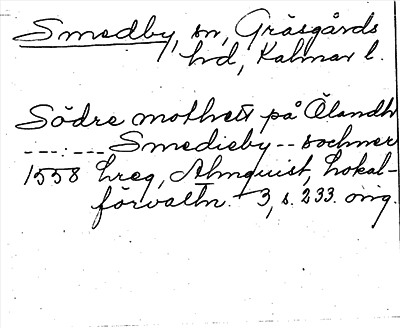 Smedby, sn, Gräsgårds
hd, Kalmar l.
Södre mothett på Ölandh
---:--- Smedieby -- sochner
1558 Lreg, Almquist, Lokal-
förvaltn. 3, s. 233. orig.